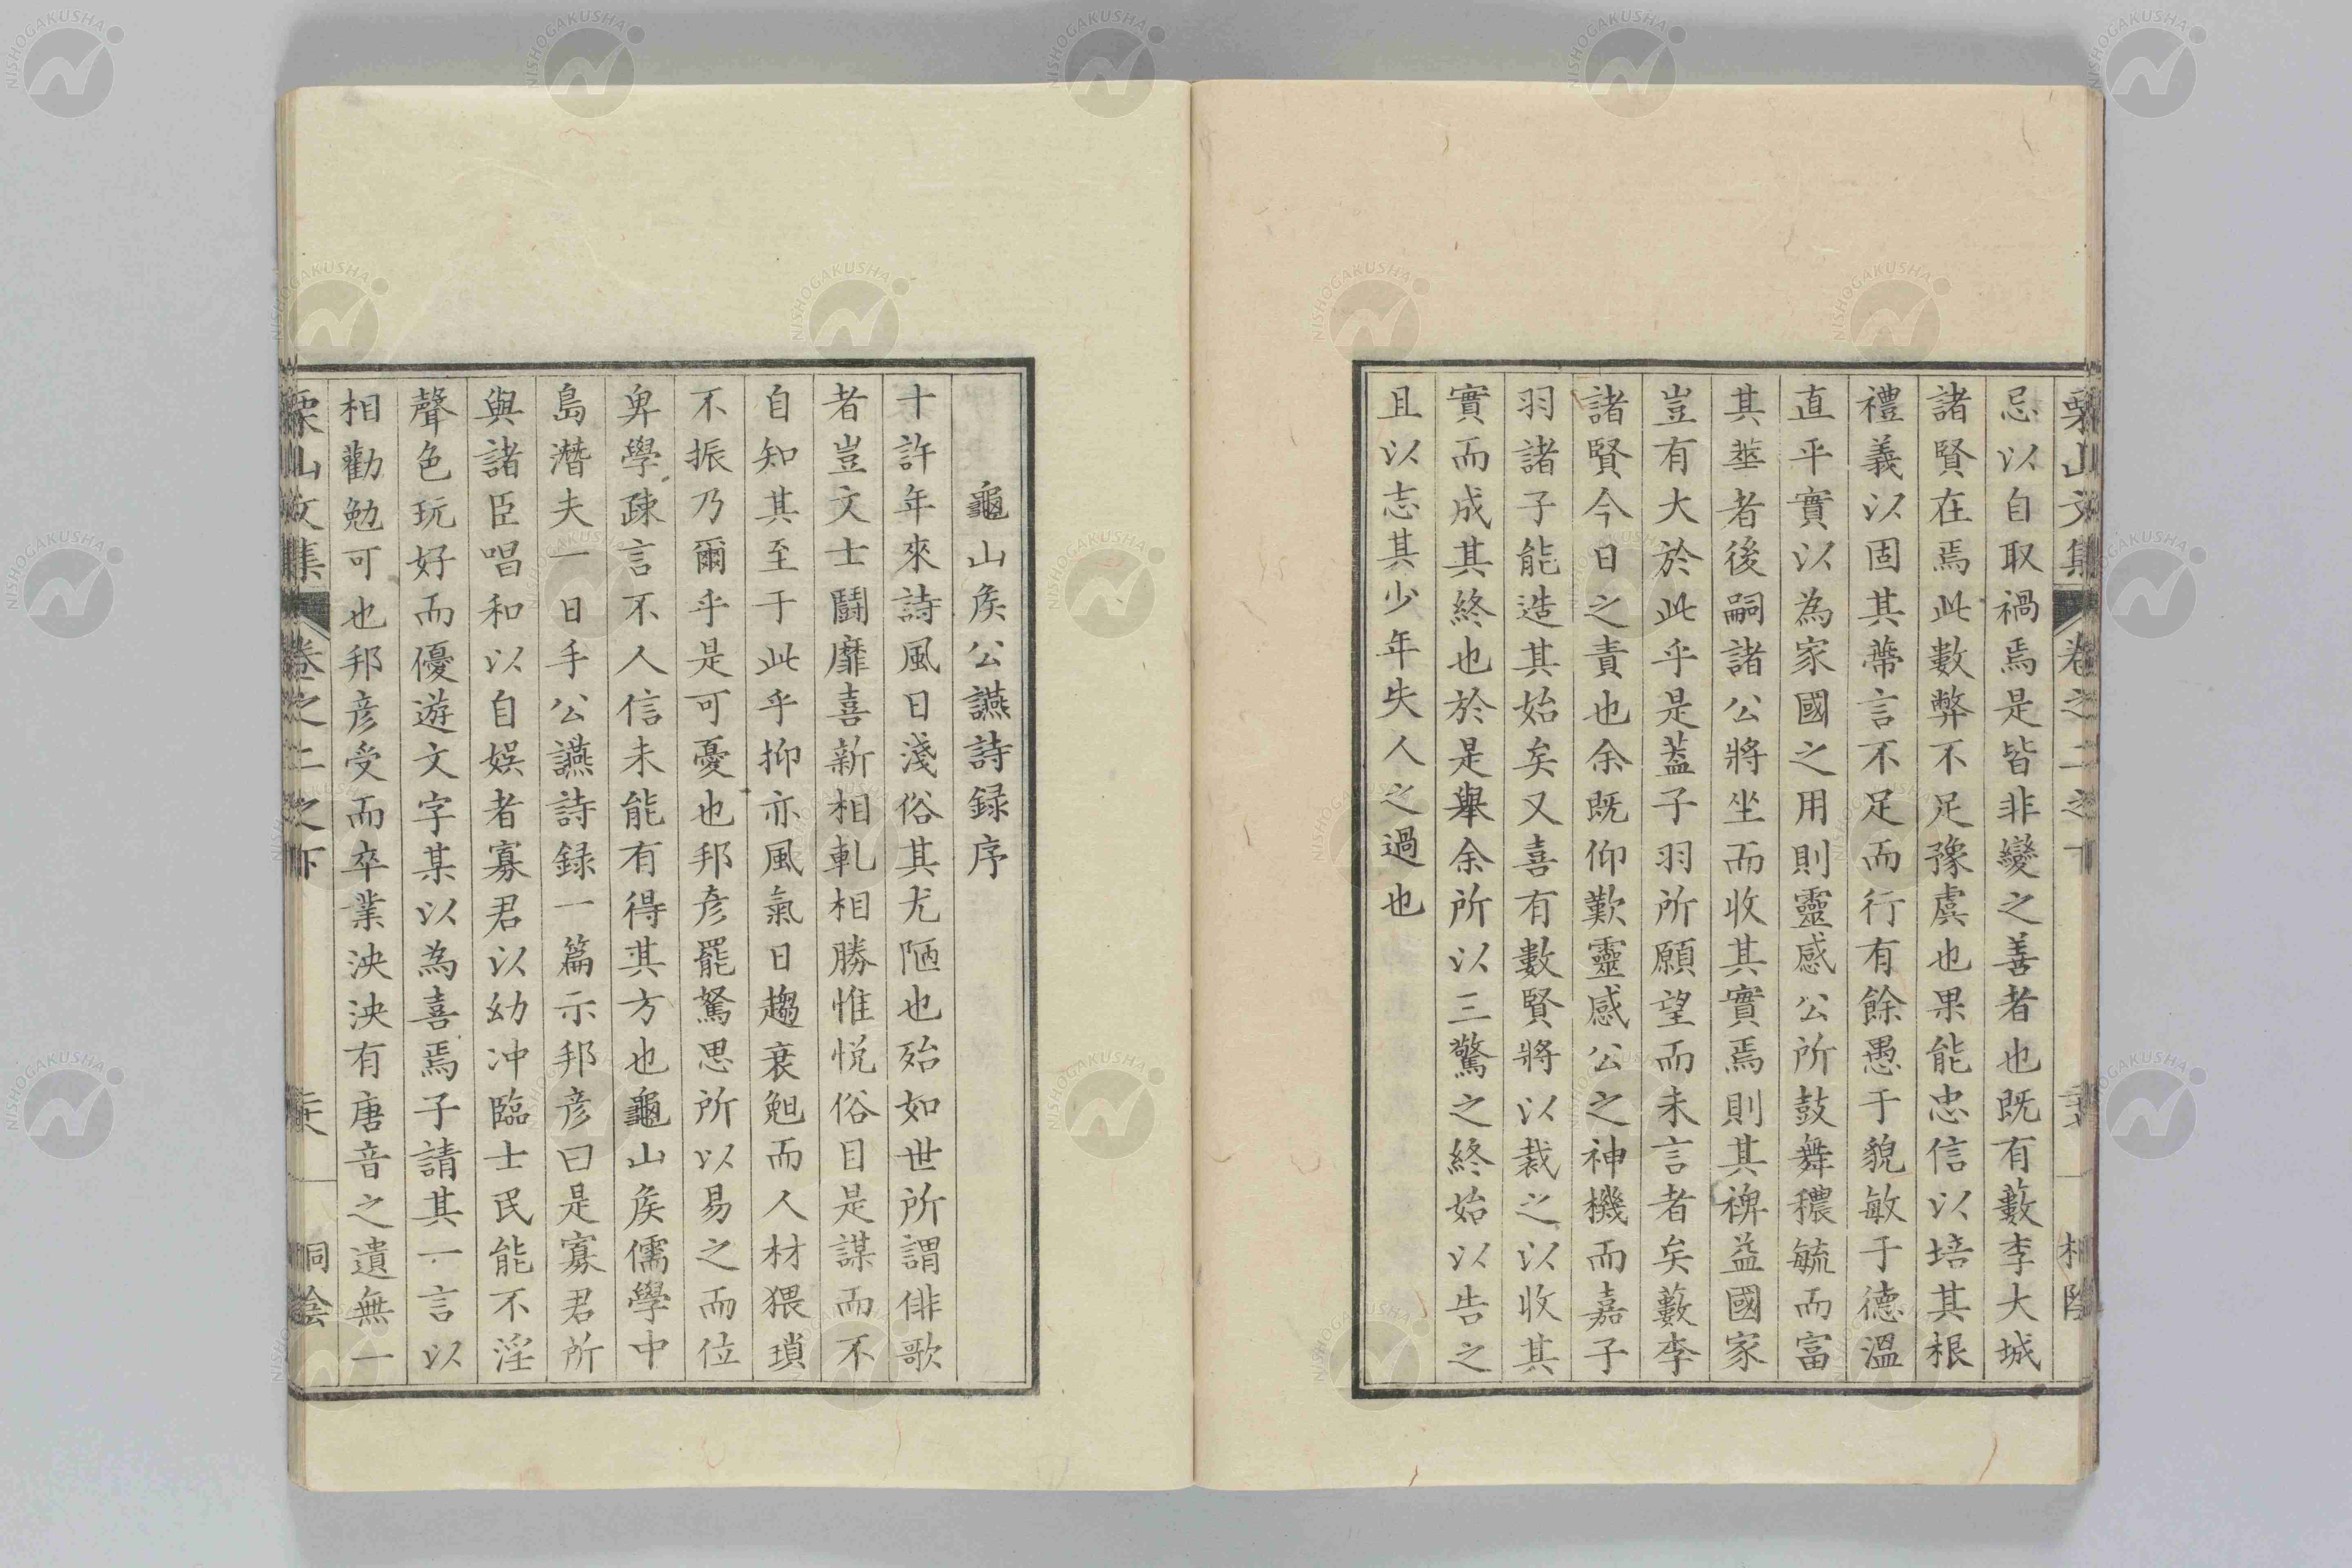 栗山文集 卷之二之下
忌以自取禍焉是皆非變之善者也既有藪李大城
諸賢在焉此數弊不足豫虞也果能忠信以培其根
禮義以固其蔕言不足而行有餘愚于貌敏于德溫
直平實以為家國之用則靈感公所鼓舞穠毓而富
其蕋者後嗣諸公將坐而收其實焉則其裨益國家
豈有大於此乎是蓋子羽所願望而未言者矣藪李
諸賢今日之責也余既仰歎靈感公之神機而嘉子
羽諸子能造其始矣又喜有數賢將以裁之以收其
實而成其終也於是舉余所以三驚之終始以告之
且以志其少年失人之過也
龜山矦公讌詩録序
十許年來詩風日淺俗其尤陋也殆如世所謂俳歌
者豈文士鬪靡喜新相軋相勝惟悅俗目是謀而不
自知其至于此乎抑亦風氣日趨衰䱇而人材猥瑣
不振乃爾乎是可憂也邦彥罷駑思所以易之而位
卑學疎言不人信未能有得其方也龜山矦儒學中
島潛夫一日手公讌詩録一篇示邦彥曰是寡君所
與諸臣唱和以自娛者寡君以幼冲臨士民能不淫
聲色玩好而優遊文字某以為喜焉子請其一言以
相勸勉可也邦彥受而卒業泱泱有唐音之遺無一
栗山文集 卷之二之下